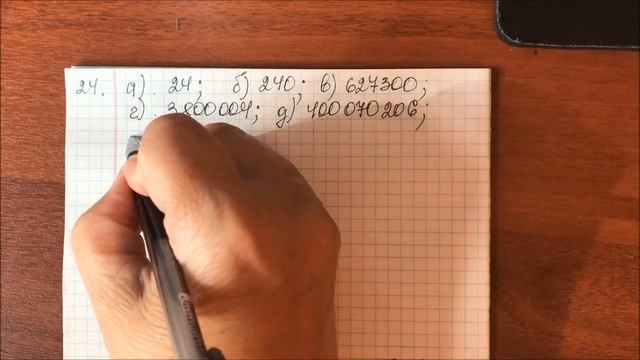 24. а). 24; б) 240; в) 627300;
г). 3800004; д) 400070206;